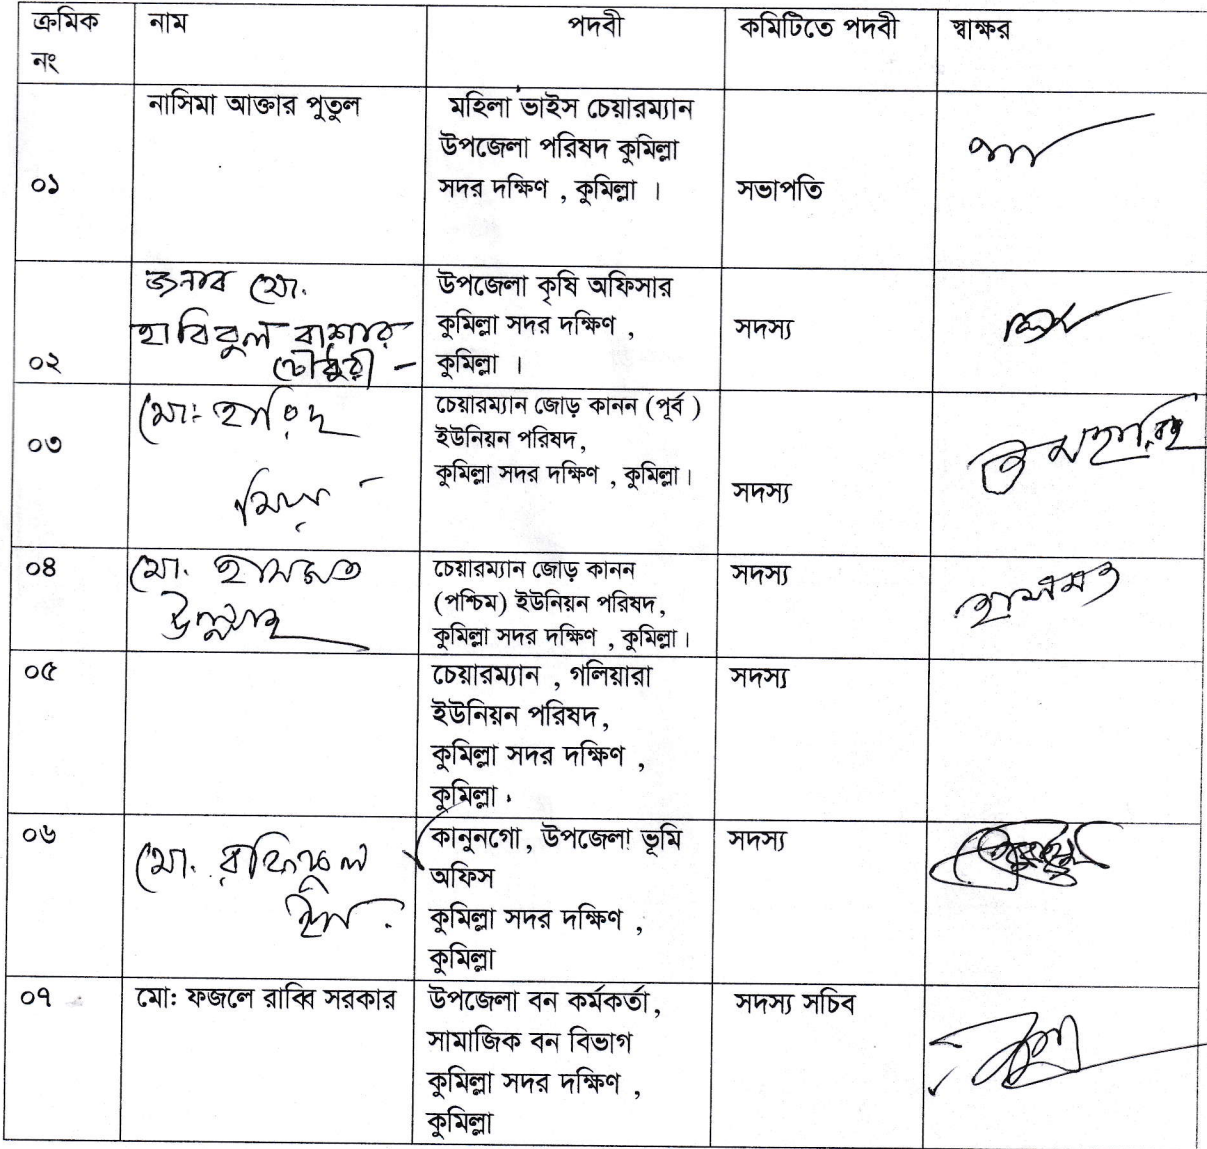 ক্রমিক নং	নাম	পদবী	কমিটিতে পদবী	স্বাক্ষর
০১	নাসিমা আক্তার পুতুল	মহিলা ভাইস চেয়ারম্যান
উপজেলা পরিষদ কুমিল্লা
সদর দক্ষিণ , কুমিল্লা ।	সভাপতি
০২	জনাব মো.
হাবিবুল বাশার
চৌধুরী –	উপজেলা কৃষি অফিসার
কুমিল্লা সদর দক্ষিণ ,
কুমিল্লা ।	সদস্য
০৩	মো: হারিদ
মিয়া	চেয়ারম্যান জোড় কানন (পূর্ব )
ইউনিয়ন পরিষদ,
কুমিল্লা সদর দক্ষিণ , কুমিল্লা।	সদস্য
০৪	মো. হাসমত
উল্ল্যাহ	চেয়ারম্যান জোড় কানন
(পশ্চিম) ইউনিয়ন পরিষদ,
কুমিল্লা সদর দক্ষিণ , কুমিল্লা।	সদস্য	হাসমত
০৫	চেয়ারম্যান , গলিয়ারা
ইউনিয়ন পরিষদ,
কুমিল্লা সদর দক্ষিণ ,
কুমিল্লা .	সদস্য
০৬	মো. রফিকুল
হক .	কানুনগো, উপজেলা ভূমি
অফিস
কুমিল্লা সদর দক্ষিণ ,
কুমিল্লা	সদস্য
০৭	মো: ফজলে রাব্বি সরকার	উপজেলা বন কর্মকর্তা,
সামাজিক বন বিভাগ
কুমিল্লা সদর দক্ষিণ ,
কুমিল্লা	সদস্য সচিব